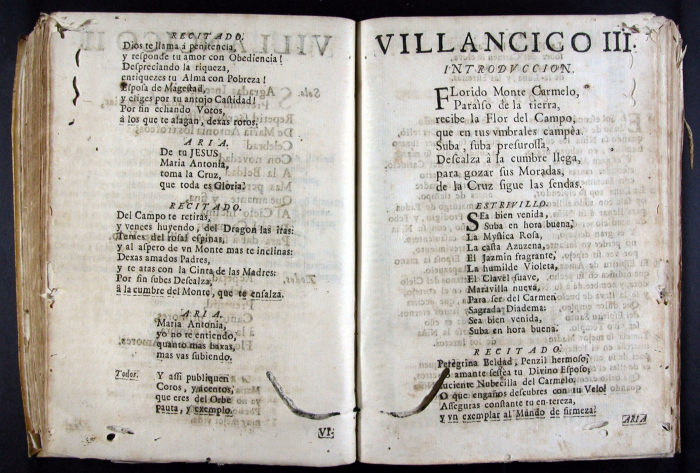 RECITADO.
Dios te llama à penitencia,
y responde tu amor con Obediencia!
Despreciando la riqueza,
enriquezes tu Alma con Pobreza!
Esposa de Magestad,
y eliges por tu antojo Castidad!
Por fin echando Votos,
à los que te alagan, dexas rotos.
ARIA.
De tu JESUS
Maria Antonia,
toma la Cruz,
que toda es Gloria.
RECITADO.
Del Campo te retiras,
y vences huyendo, del Dragon las iras:
Temes del rosal espinas,
y al aspero de vn Monte mas te inclinas:
Dexas amados Padres,
y te atas con la Cinta de las Madres:
Por fin subes Descalza,
à la cumbre del Monte, que te ensalza.
ARIA.
Maria Antonia,
yo no te entiendo,
quanto mas baxas,
mas vas subiendo.
Todos. Y assi publiquen
Coros, y acentos,
que eres del Orbe
pauta, y exemplo.
VI-
VILLANCICO III.
INTRODVCCION.
FLorido Monte Carmelo,
Paraiso de la tierra,
recibe la Flor del Campo,
que en tus vmbrales campèa.
Suba, suba presurosa,
Descalza à la cumbre llega,
para gozar sus Moradas,
de la Cruz sigue las sendas.
ESTRIVILLO.
SEa bien venida,
Suba en hora buena,
La Mystica Rosa,
La casta Azuzena,
El Jazmin fragrante,
La humilde Violeta,
El Clavel suave,
Maravilla nueva,
Para ser del Carmen
Sagrada Diadema:
Sea bien venida,
Suba en hora buena.
RECITADO.
Peregrina Beldad, Penzil hermoso,
amante sestea tu Divino Esposo,
Luciente Nubecilla del Carmelo,
O que engaños descubres con tu Velo!
Asseguras constante tu entereza,
y vn exemplar al Mundo de firmeza!
ARIA